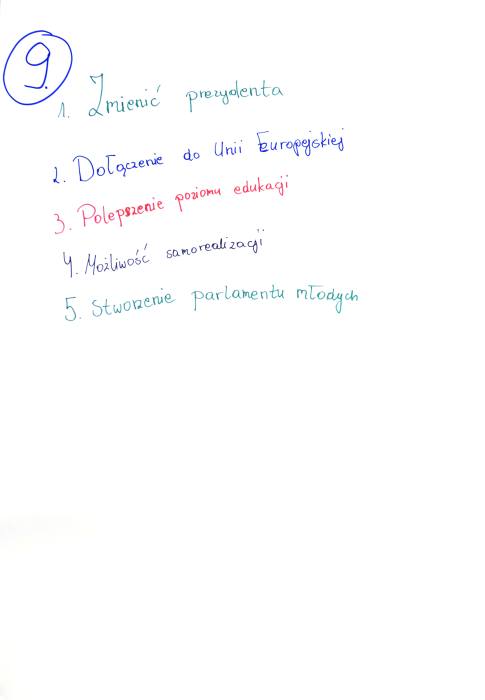 9.
1. Zmienić prezydenta
2. Dołączenie do Unii Europejskiej
3. Polepszenie poziomu edukagi
4. Możliwość samorealizagji
5. Stworzenie parlamentu młodych